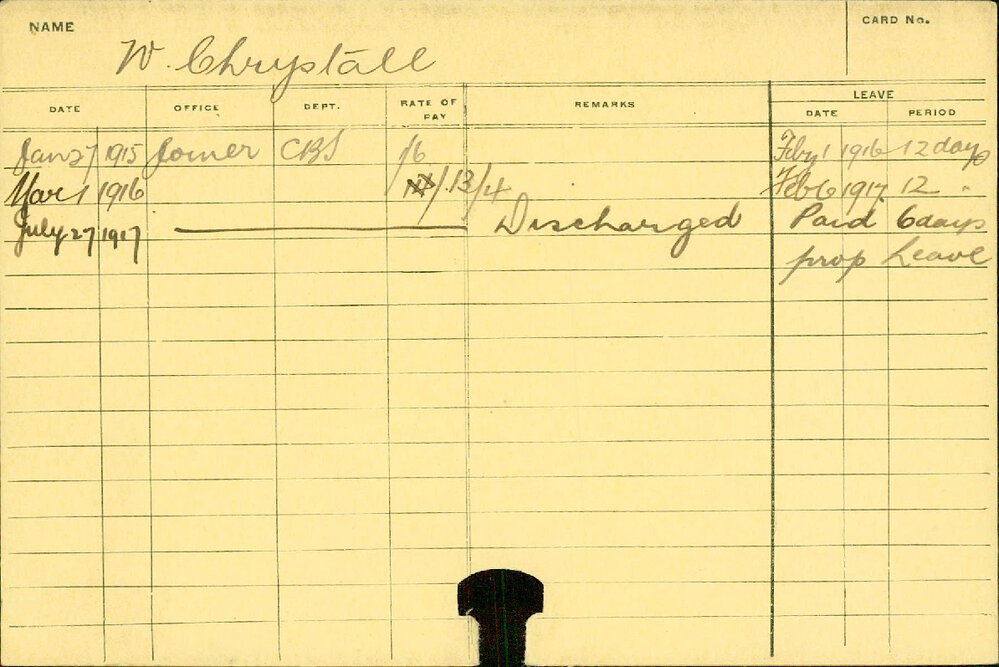 NAME
CARD No.
W. Chrystall
DATE OFFICE DEPT. RATE OF PAY REMARKS LEAVE
DATE PERIOD
Jan 27 1915 Joiner CBS /6 Feby 1 1916 12 days
Mar 1 1916 /13/4 Feb 6 1917 12 "
July 27 1917 Discharged Paid 6 days
prop Leave